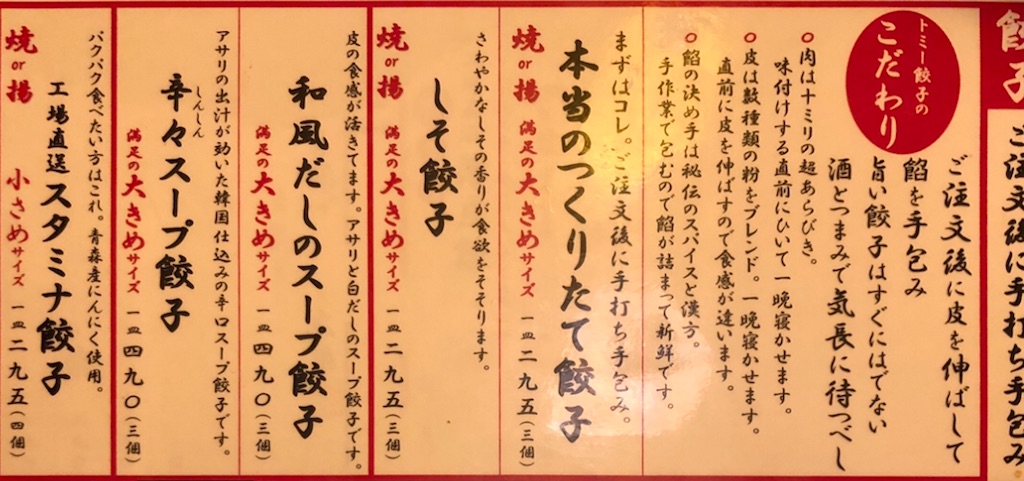 餃子
ご注文後に手打ち手包み
トミー餃子の
こだわり
ご注文後に皮を伸ばして
餡を手包み
旨い餃子はすぐにはでない
酒とつまみで気長に待つべし
○肉は十ミリの超あらびき。
味付けする直前にひいて一晩寝かせます。
○皮は数種類の粉をブレンド。一晩寝かせます。
直前に皮を伸ばすので食感が違います。
○餡の決め手は秘伝のスパイスと漢方。
手作業で包むので餡が詰まって新鮮です。
まずはコレ。ご注文後に手打ち手包み。
本当のつくりたて餃子
焼or揚 満足の大きめサイズ 一皿二九五(三個)
さわやかなしその香りが食欲をそそります。
しそ餃子
焼or揚 満足の大きめサイズ 一皿二九五(三個)
皮の食感が活きてます。アサリと白だしのスープ餃子です。
和風だしのスープ餃子
満足の大きめサイズ 一皿四九〇(三個)
アサリの出汁が効いた韓国仕込みの辛口スープ餃子です。
しんしん
辛々スープ餃子
満足の大きめサイズ 一皿四九〇(三個)
パクパク食べたい方はこれ。青森産にんにく使用。
工場直送スタミナ餃子
焼or揚 小さめサイズ 一皿二九五(四個)